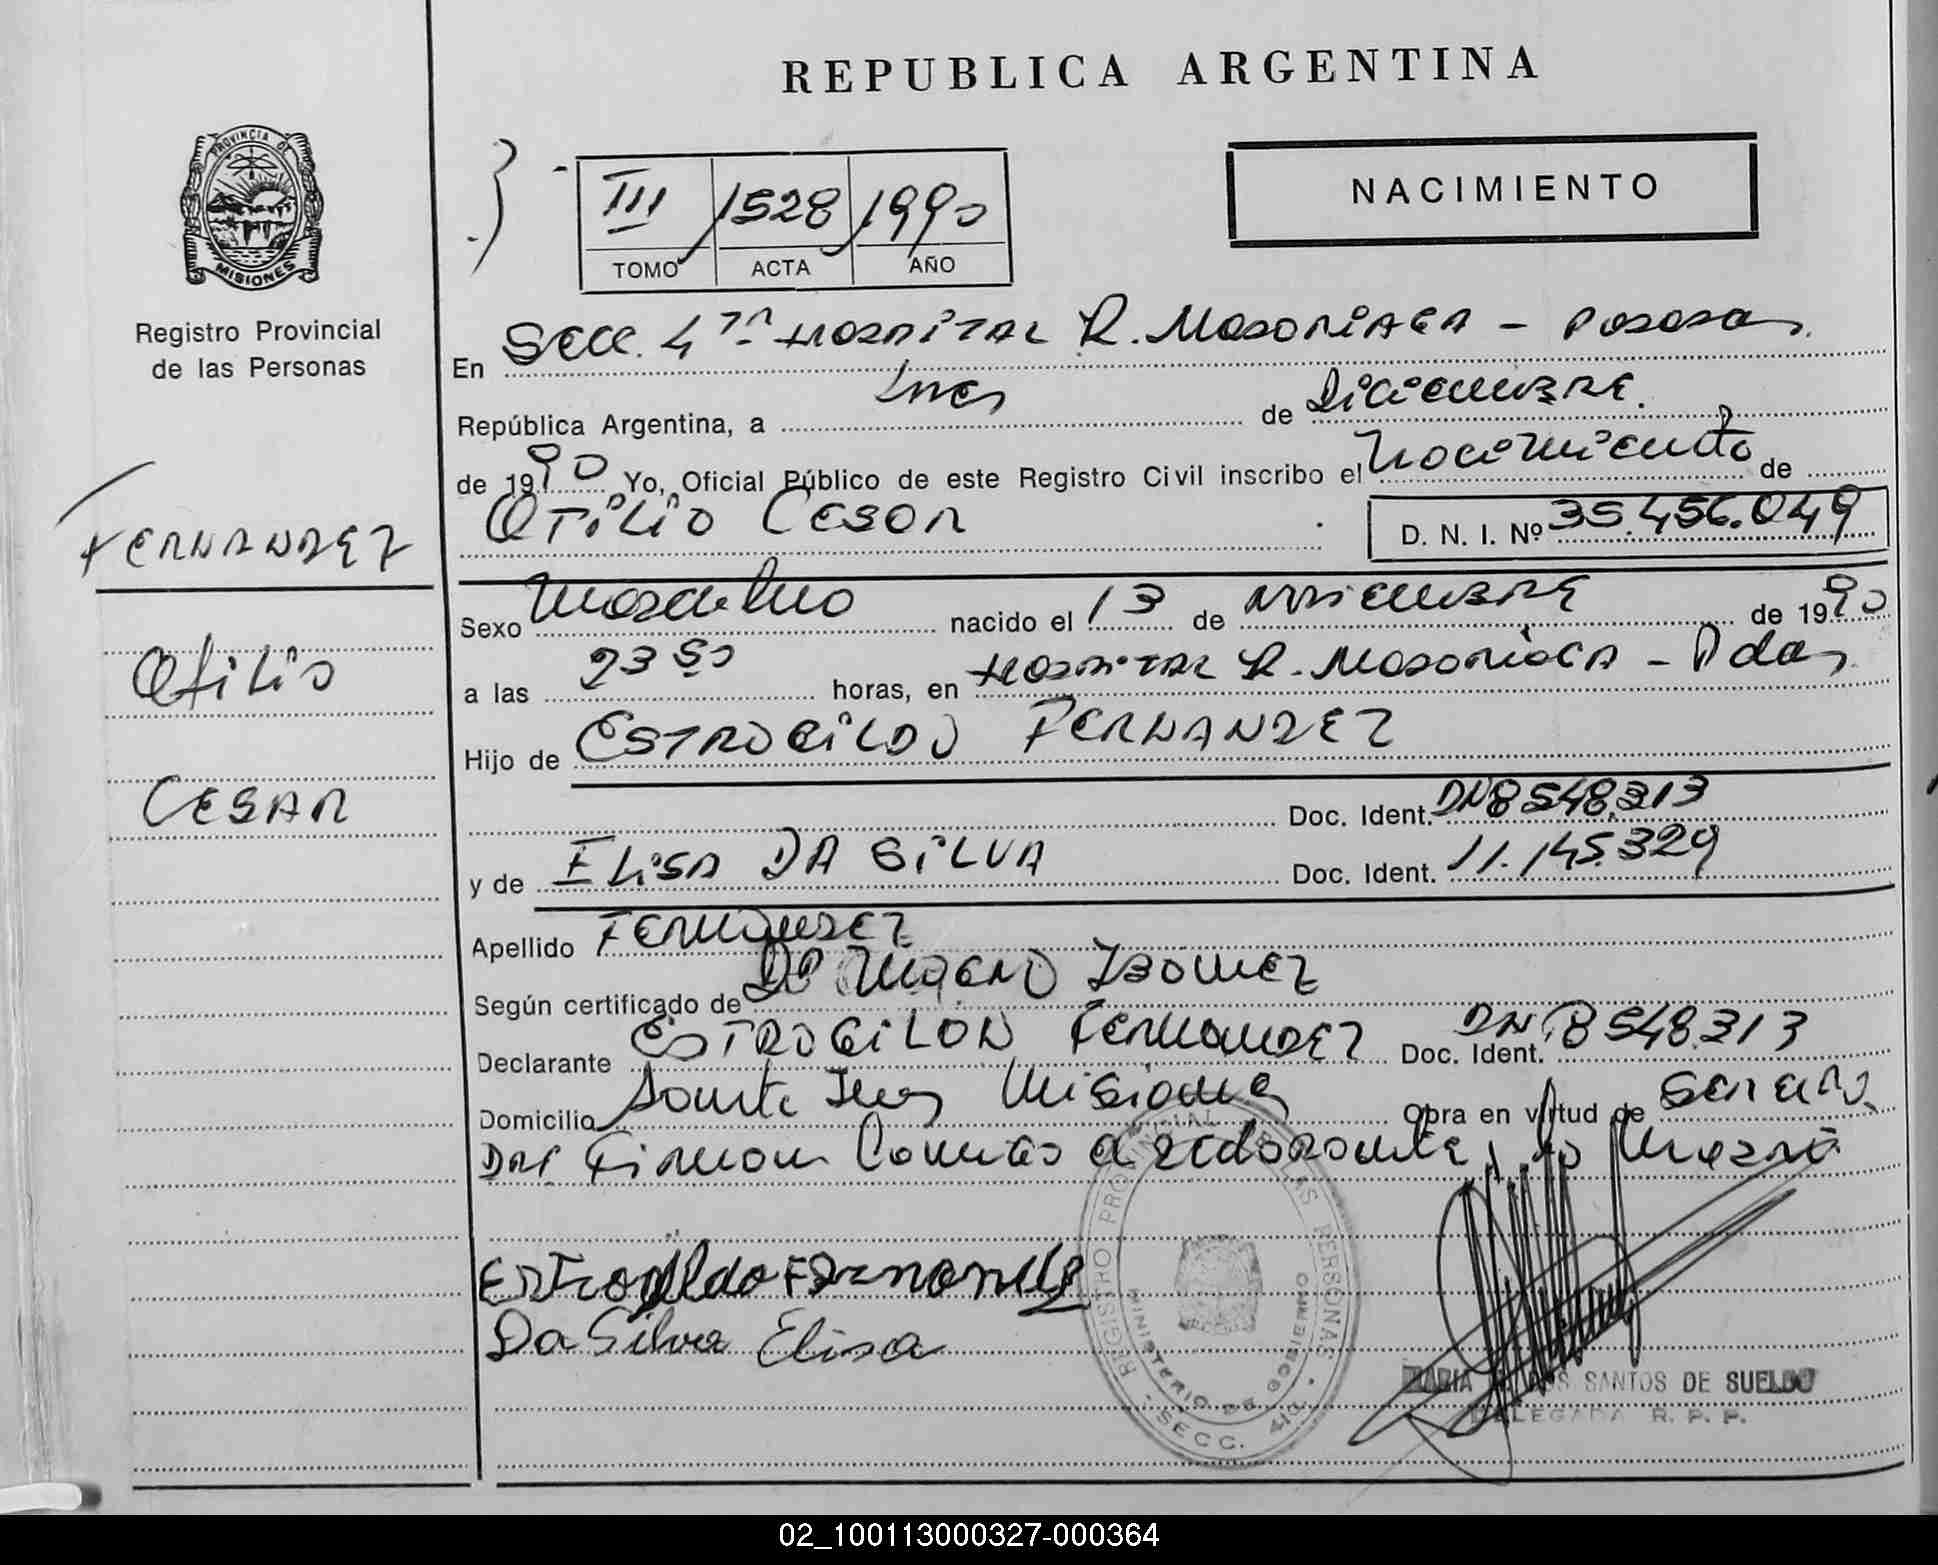 REPUBLICA ARGENTINA
PROVINCIA DE
MISIONES
Registro Provincial
de las Personas
III 1528 1990
TOMO ACTA AÑO
NACIMIENTO
En Secc. 4ta Hospital R. Madariaga - Posadas
República Argentina, a tres de Diciembre
de 1990 Yo, Oficial Público de este Registro Civil inscribo el nacimiento de
Otilio Cesar D. N. I. Nº 35.456.049
FERNANDEZ
Otilio
CESAR
Sexo masculino nacido el 13 de noviembre de 1990
a las 23 50 horas, en Hospital R. Madariaga - Pdas
Hijo de ESTROGILDO FERNANDEZ
Doc. Ident. DNI 8548.313
y de ELISA DA SILVA Doc. Ident. 11.145.329
Apellido FERNANDEZ
Según certificado de
Declarante ESTROGILDO Fernandez Doc. Ident. DNI 8548.313
Domicilio Santa Ines Misiones Obra en virtud de ser el p.
firman conmigo el declarante y la madre
Estrogildo Fernandez
Da Silva Elisa
REGISTRO PROVINCIAL DE LAS PERSONAS
MINISTERIO DE GOBIERNO
SECC. 4ta.
MARIA SANTOS DE SUELDO
DELEGADA R. P. P.
02_100113000327-000364